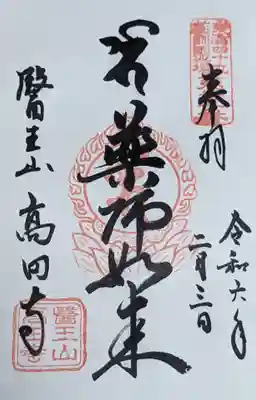 奉拝
令和六年
二月三日
薬师如来
醫王山 高田寺
醫王山